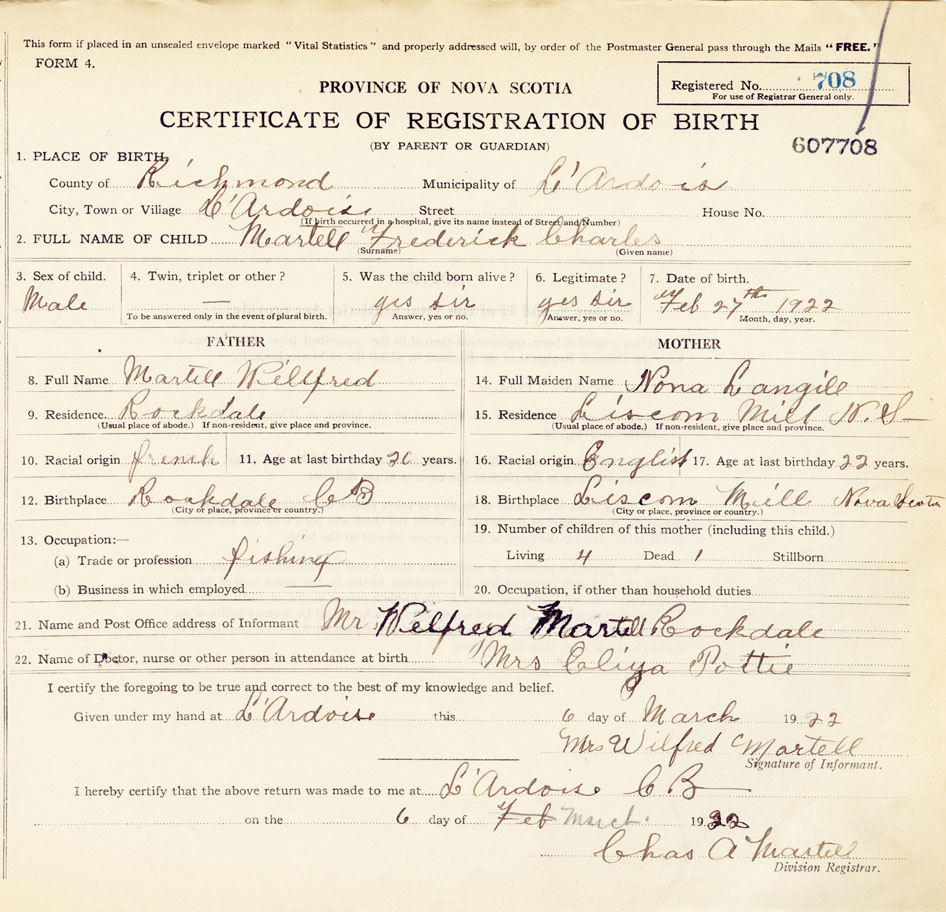 This form if placed in an unsealed envelope marked "Vital Statistics" and properly addressed will, by order of the Postmaster General pass through the Mails "FREE."
FORM 4.
PROVINCE OF NOVA SCOTIA
Registered No. 708
For use of Registrar General only.
CERTIFICATE OF REGISTRATION OF BIRTH
(BY PARENT OR GUARDIAN)
607708
1. PLACE OF BIRTH,
County of Richmond Municipality of L'Ardois
City, Town or Village L'Ardoise Street House No.
(If birth occurred in a hospital, give its name instead of Street and Number)
2. FULL NAME OF CHILD Martell Frederick Charles
(Surname) (Given name)
3. Sex of child. 4. Twin, triplet or other? 5. Was the child born alive? 6. Legitimate? 7. Date of birth.
Male — yes sir yes sir Feb 27th 1922
To be answered only in the event of plural birth. Answer, yes or no. Answer, yes or no. Month, day, year.
FATHER MOTHER
8. Full Name Martell Willfred 14. Full Maiden Name Nona Langill
9. Residence. Rockdale 15. Residence Liscom Mill N.S
(Usual place of abode.) If non-resident, give place and province. (Usual place of abode.) If non-resident, give place and province.
10. Racial origin french 11. Age at last birthday 26 years. 16. Racial origin English 17. Age at last birthday 22 years.
12. Birthplace Rockdale CB 18. Birthplace Liscom Mill Nova Scotia
(City or place, province or country.) (City or place, province or country.)
13. Occupation:— 19. Number of children of this mother (including this child.)
(a) Trade or profession fishing Living 4 Dead 1 Stillborn
(b) Business in which employed 20. Occupation, if other than household duties
21. Name and Post Office address of Informant Mr Wilfred Martell Rockdale
22. Name of Doctor, nurse or other person in attendance at birth Mrs Eliza Pottie
I certify the foregoing to be true and correct to the best of my knowledge and belief.
Given under my hand at L'Ardoise this 6 day of March 1922
Mrs Wilfred Martell
Signature of Informant.
I hereby certify that the above return was made to me at L'Ardoise C B
on the 6 day of Feb March. 1922
Chas A Martell
Division Registrar.